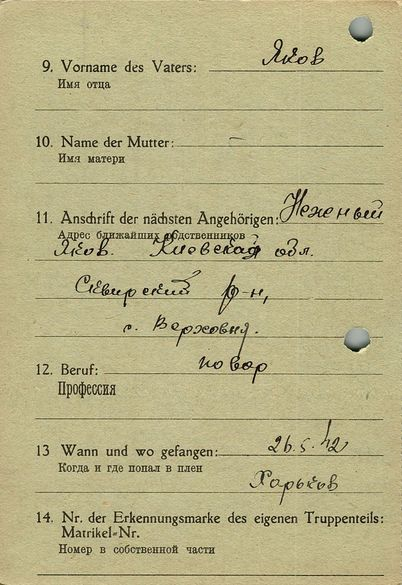 9. Vorname des Vaters: Яков
Имя отца
10. Name der Mutter: —
Имя матери
11. Anschrift der nächsten Angehörigen: Неженый
Адрес ближайших родственников
Яков. Киевская обл.
Сквирский р-н,
с. Верховня.
12. Beruf: повар
Профессия
13 Wann und wo gefangen: 26.5.42
Когда и где попал в плен
Харьков
14. Nr. der Erkennungsmarke des eigenen Truppenteils:
Matrikel-Nr.
Номер в собственной части